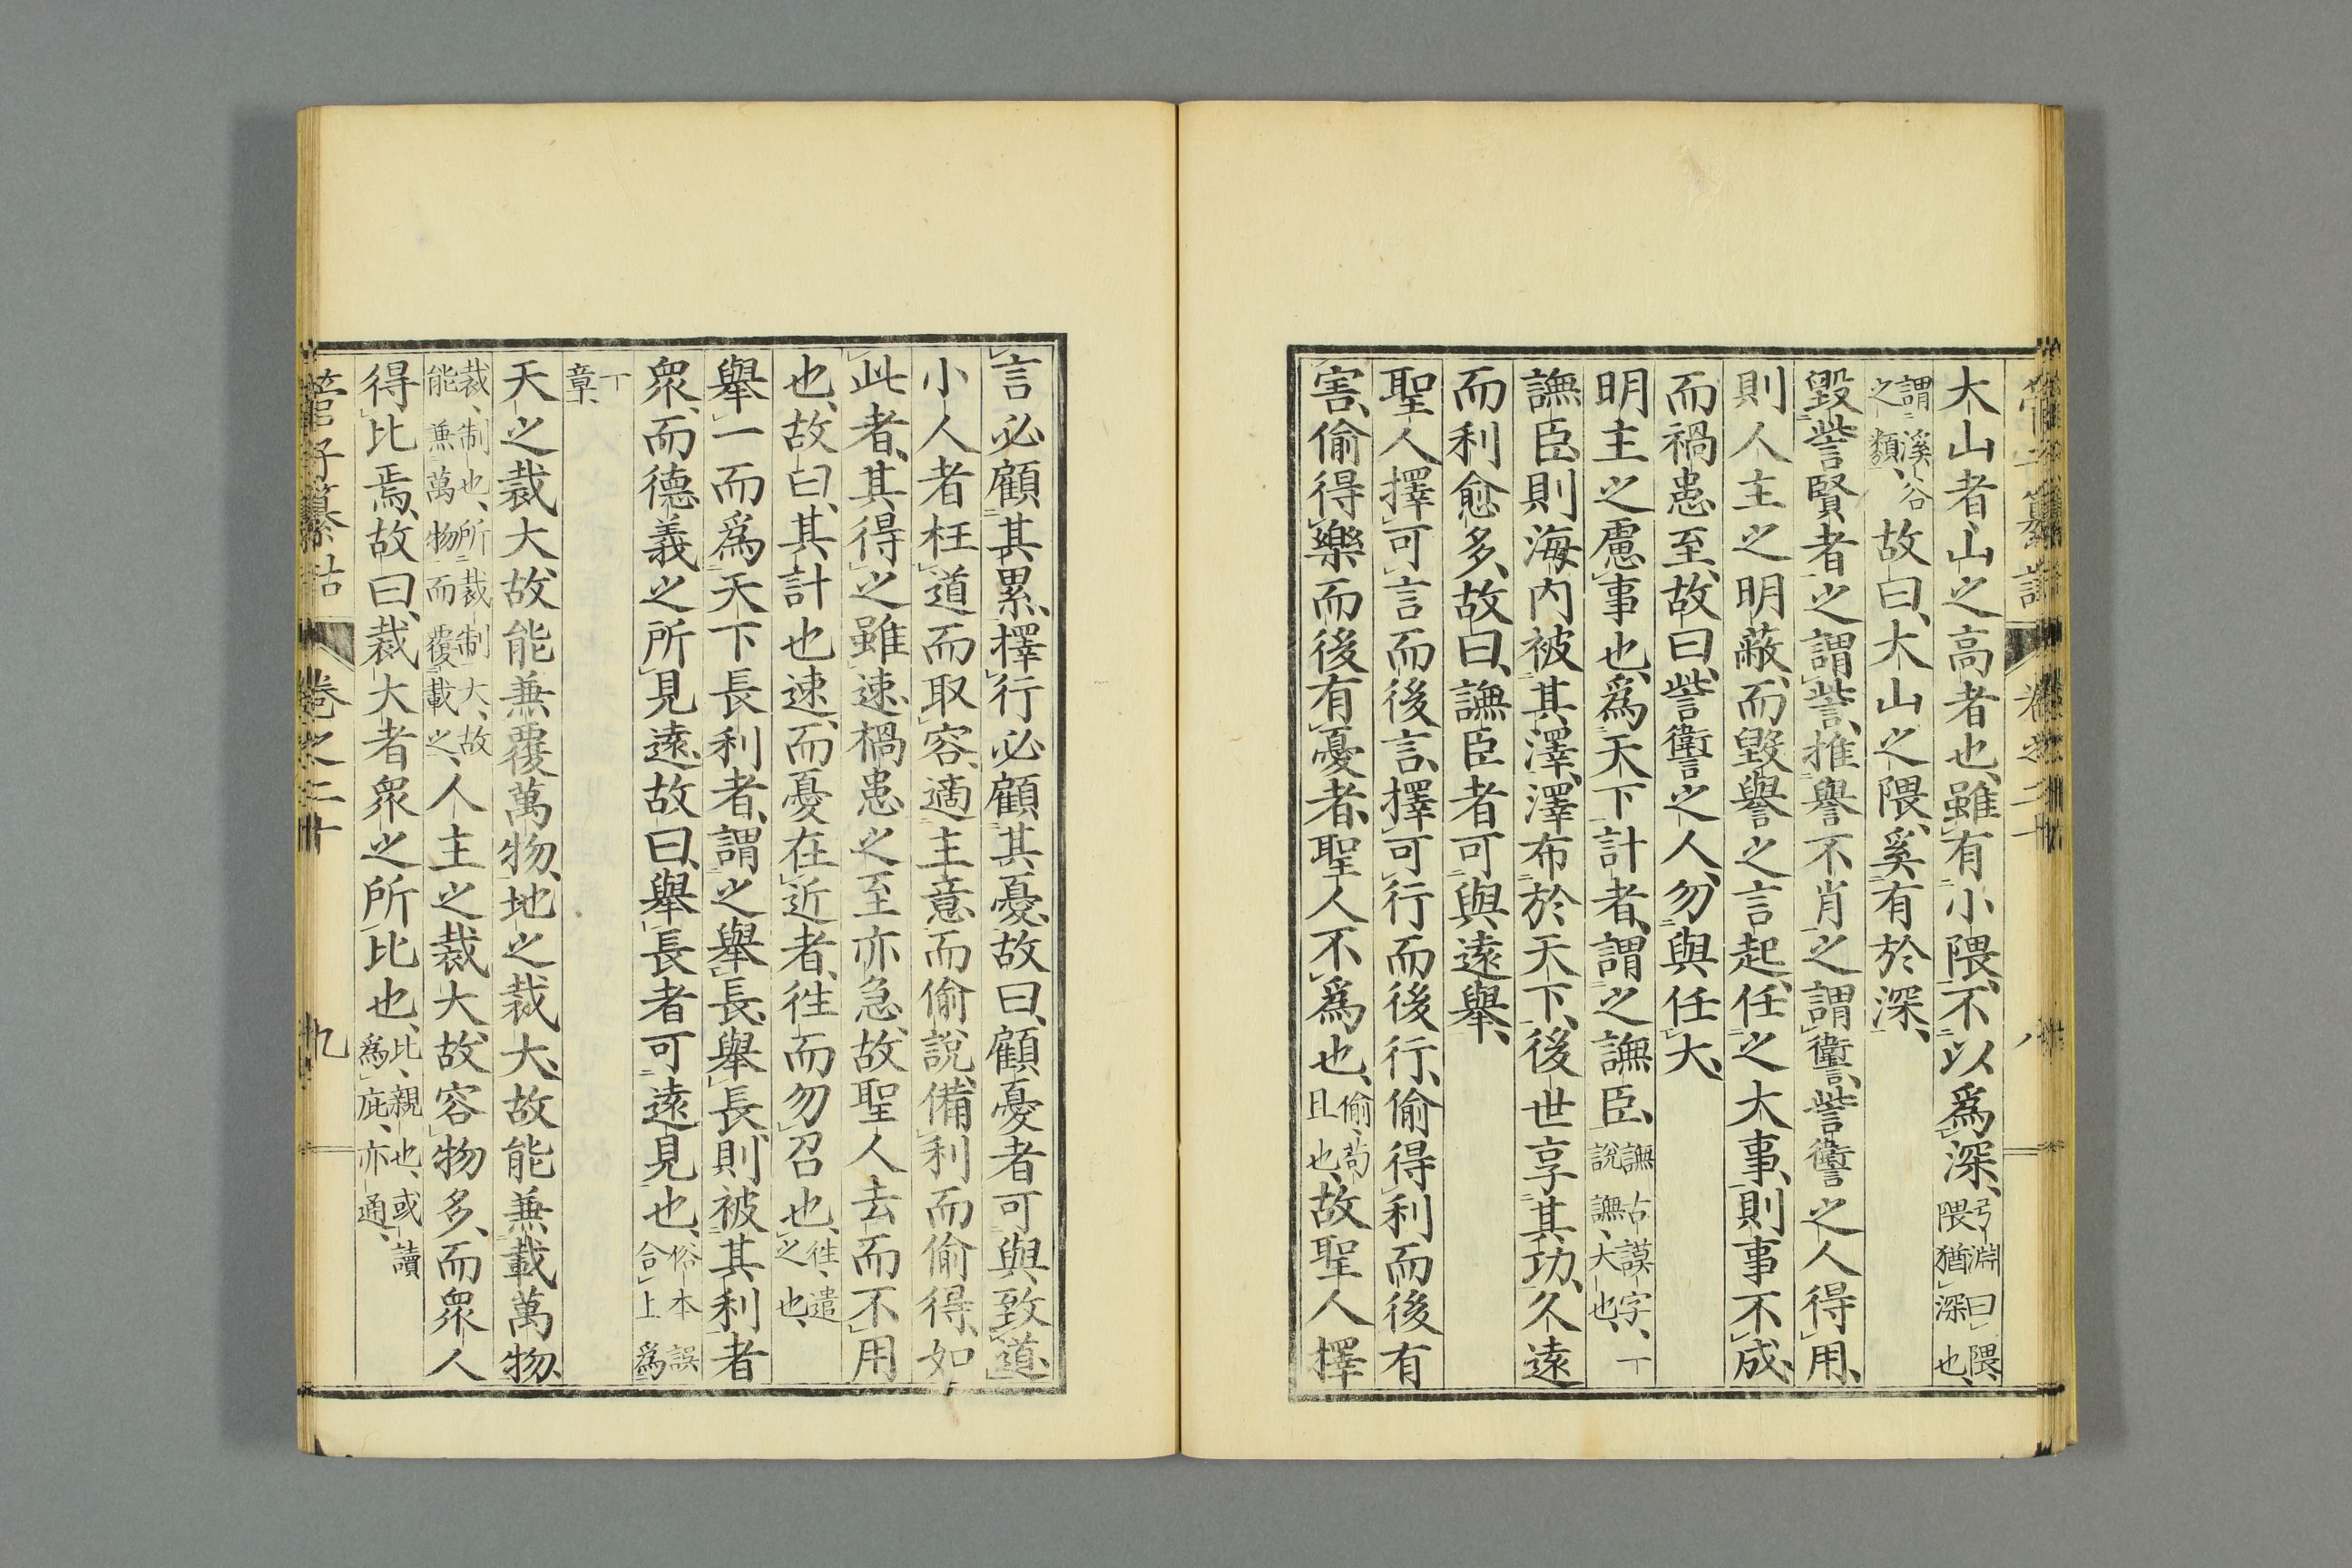 管子纂詁 卷之二十 八
大山者山之高者也、雖有小隈、不以爲深、弓淵曰、隈、隈猶深也、
謂溪谷之類、故曰、大山之隈、奚有於深、
毀訾賢者之謂訾、推譽不肖之謂讆、訾讆之人得用、
則人主之明蔽、而毀譽之言起、任之大事、則事不成、
而禍患至、故曰、訾讆之人、勿與任大、
明主之慮事也、爲天下計者、謂之譕臣、譕古謨字、丁說譕、大也、
譕臣、則海內被其澤、澤布於天下、後世享其功、久遠
而利愈多、故曰、譕臣者可與遠舉、
聖人擇可言而後言、擇可行而後行、偷得利而後有
害、偷得樂而後有憂者、聖人不爲也、偷、苟且也、故聖人擇
言必顧其累、擇行必顧其憂、故曰、顧憂者可與致道、
小人者枉道而取容、適主意而偷說、備利而偷得、如
此者、其得之雖速、禍患之至亦急、故聖人去而不用
也、故曰、其計也速、而憂在近者、往而勿召也、往、遣之也、
舉一而爲天下長利者、謂之舉長、舉長、則被其利者
衆、而德義之所見遠、故曰、舉長者可遠見也、俗本誤合上爲
丁章、
天之裁大、故能兼覆萬物、地之裁大、故能兼載萬物、
裁、制也、所裁制大、故能兼萬物而覆載之、人主之裁大、故容物多、而衆人
得比焉、故曰、裁大者衆之所比也、比、親也、或讀爲庇、亦通、
管子纂詁 卷之二十 九